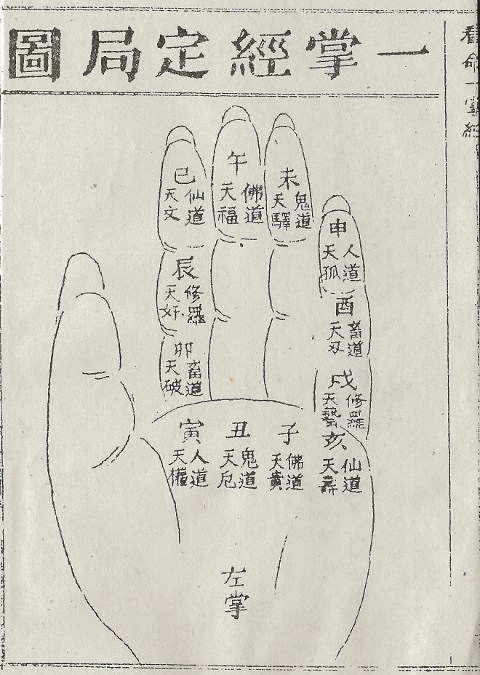 看命一掌經
一掌經定局圖
子
佛道
天貴
丑
鬼道
天厄
寅
人道
天權
卯
畜道
天破
辰
修羅
天奸
巳
仙道
天文
午
佛道
天福
未
鬼道
天驛
申
人道
天孤
酉
畜道
天刃
戌
修羅
天藝
亥
仙道
天壽
左掌